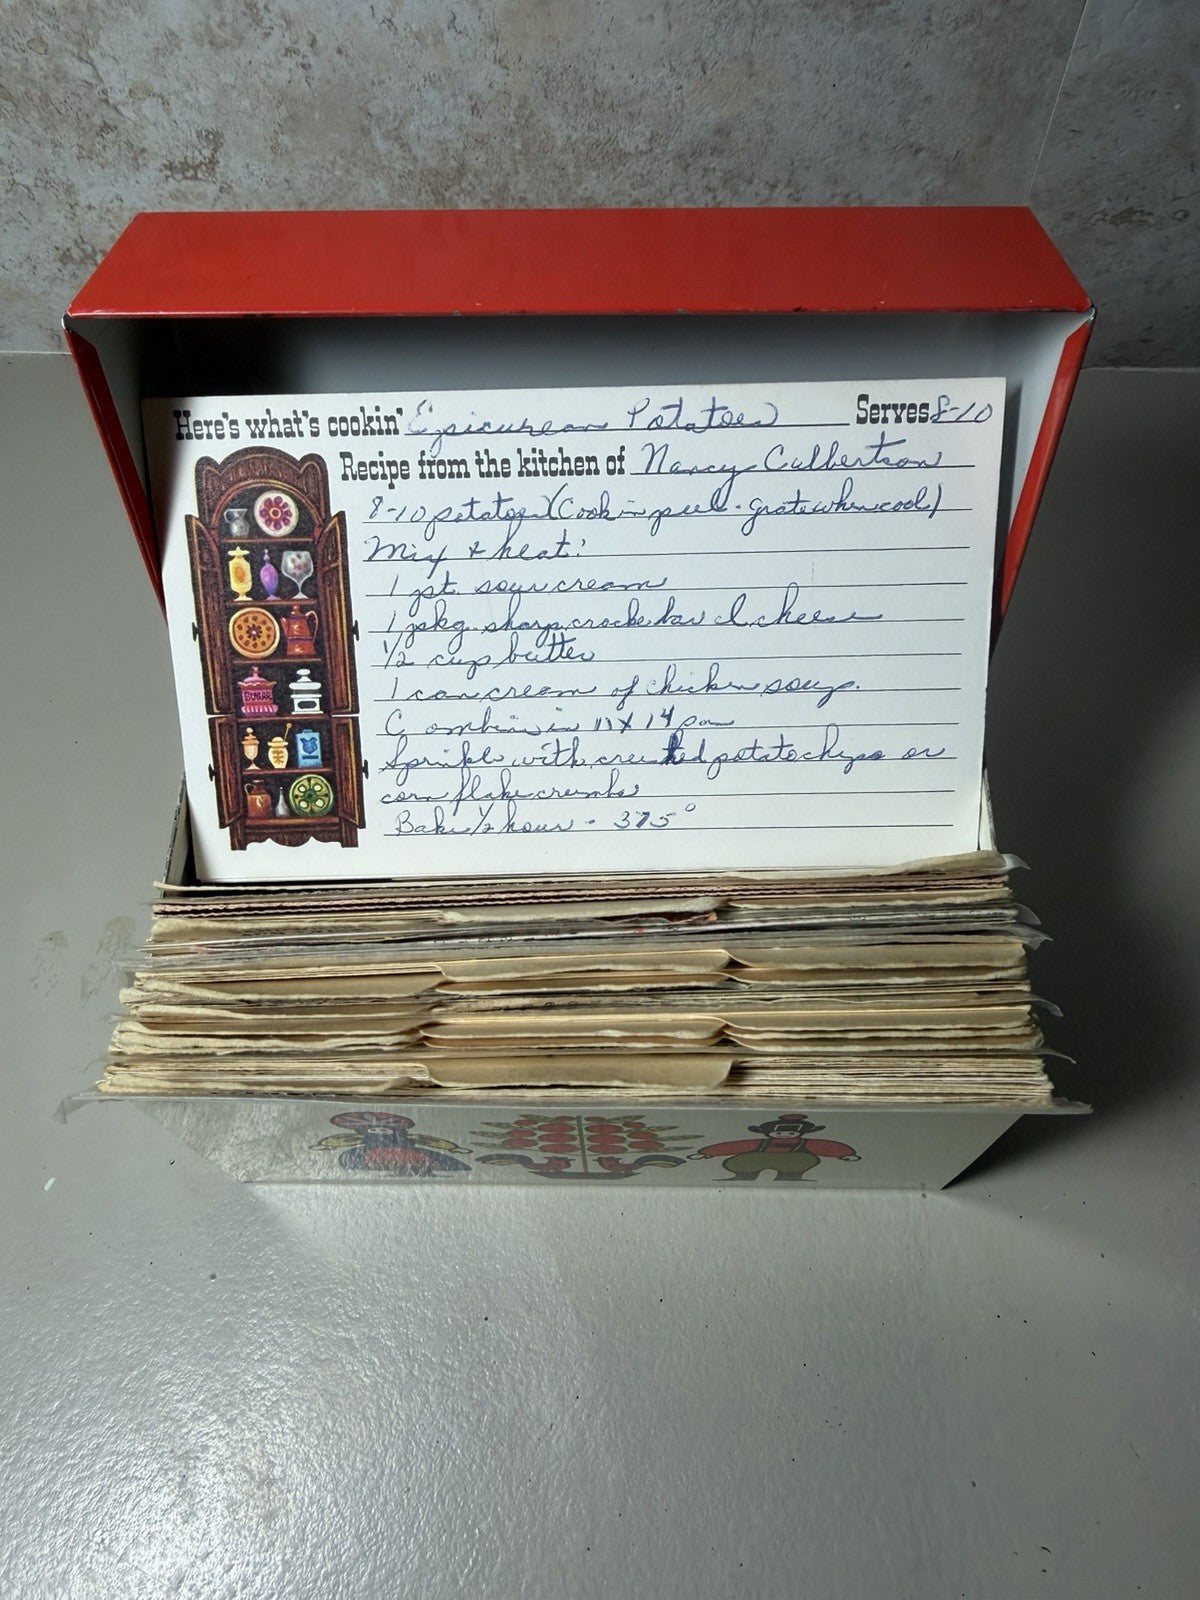 Here's what's cookin' Epicurean Potatoes Serves 8-10
Recipe from the kitchen of Nancy Culbertson
8-10 potatoes (Cook in peel - grate when cool)
Mix & heat:
1 pt. sour cream
1 pkg. sharp cracker barrel cheese
1/2 cup butter
1 can cream of chicken soup.
Combine in 11 X 14 pan
Sprinkle with crushed potato chips or
corn flake crumbs
Bake 1/2 hour - 375°